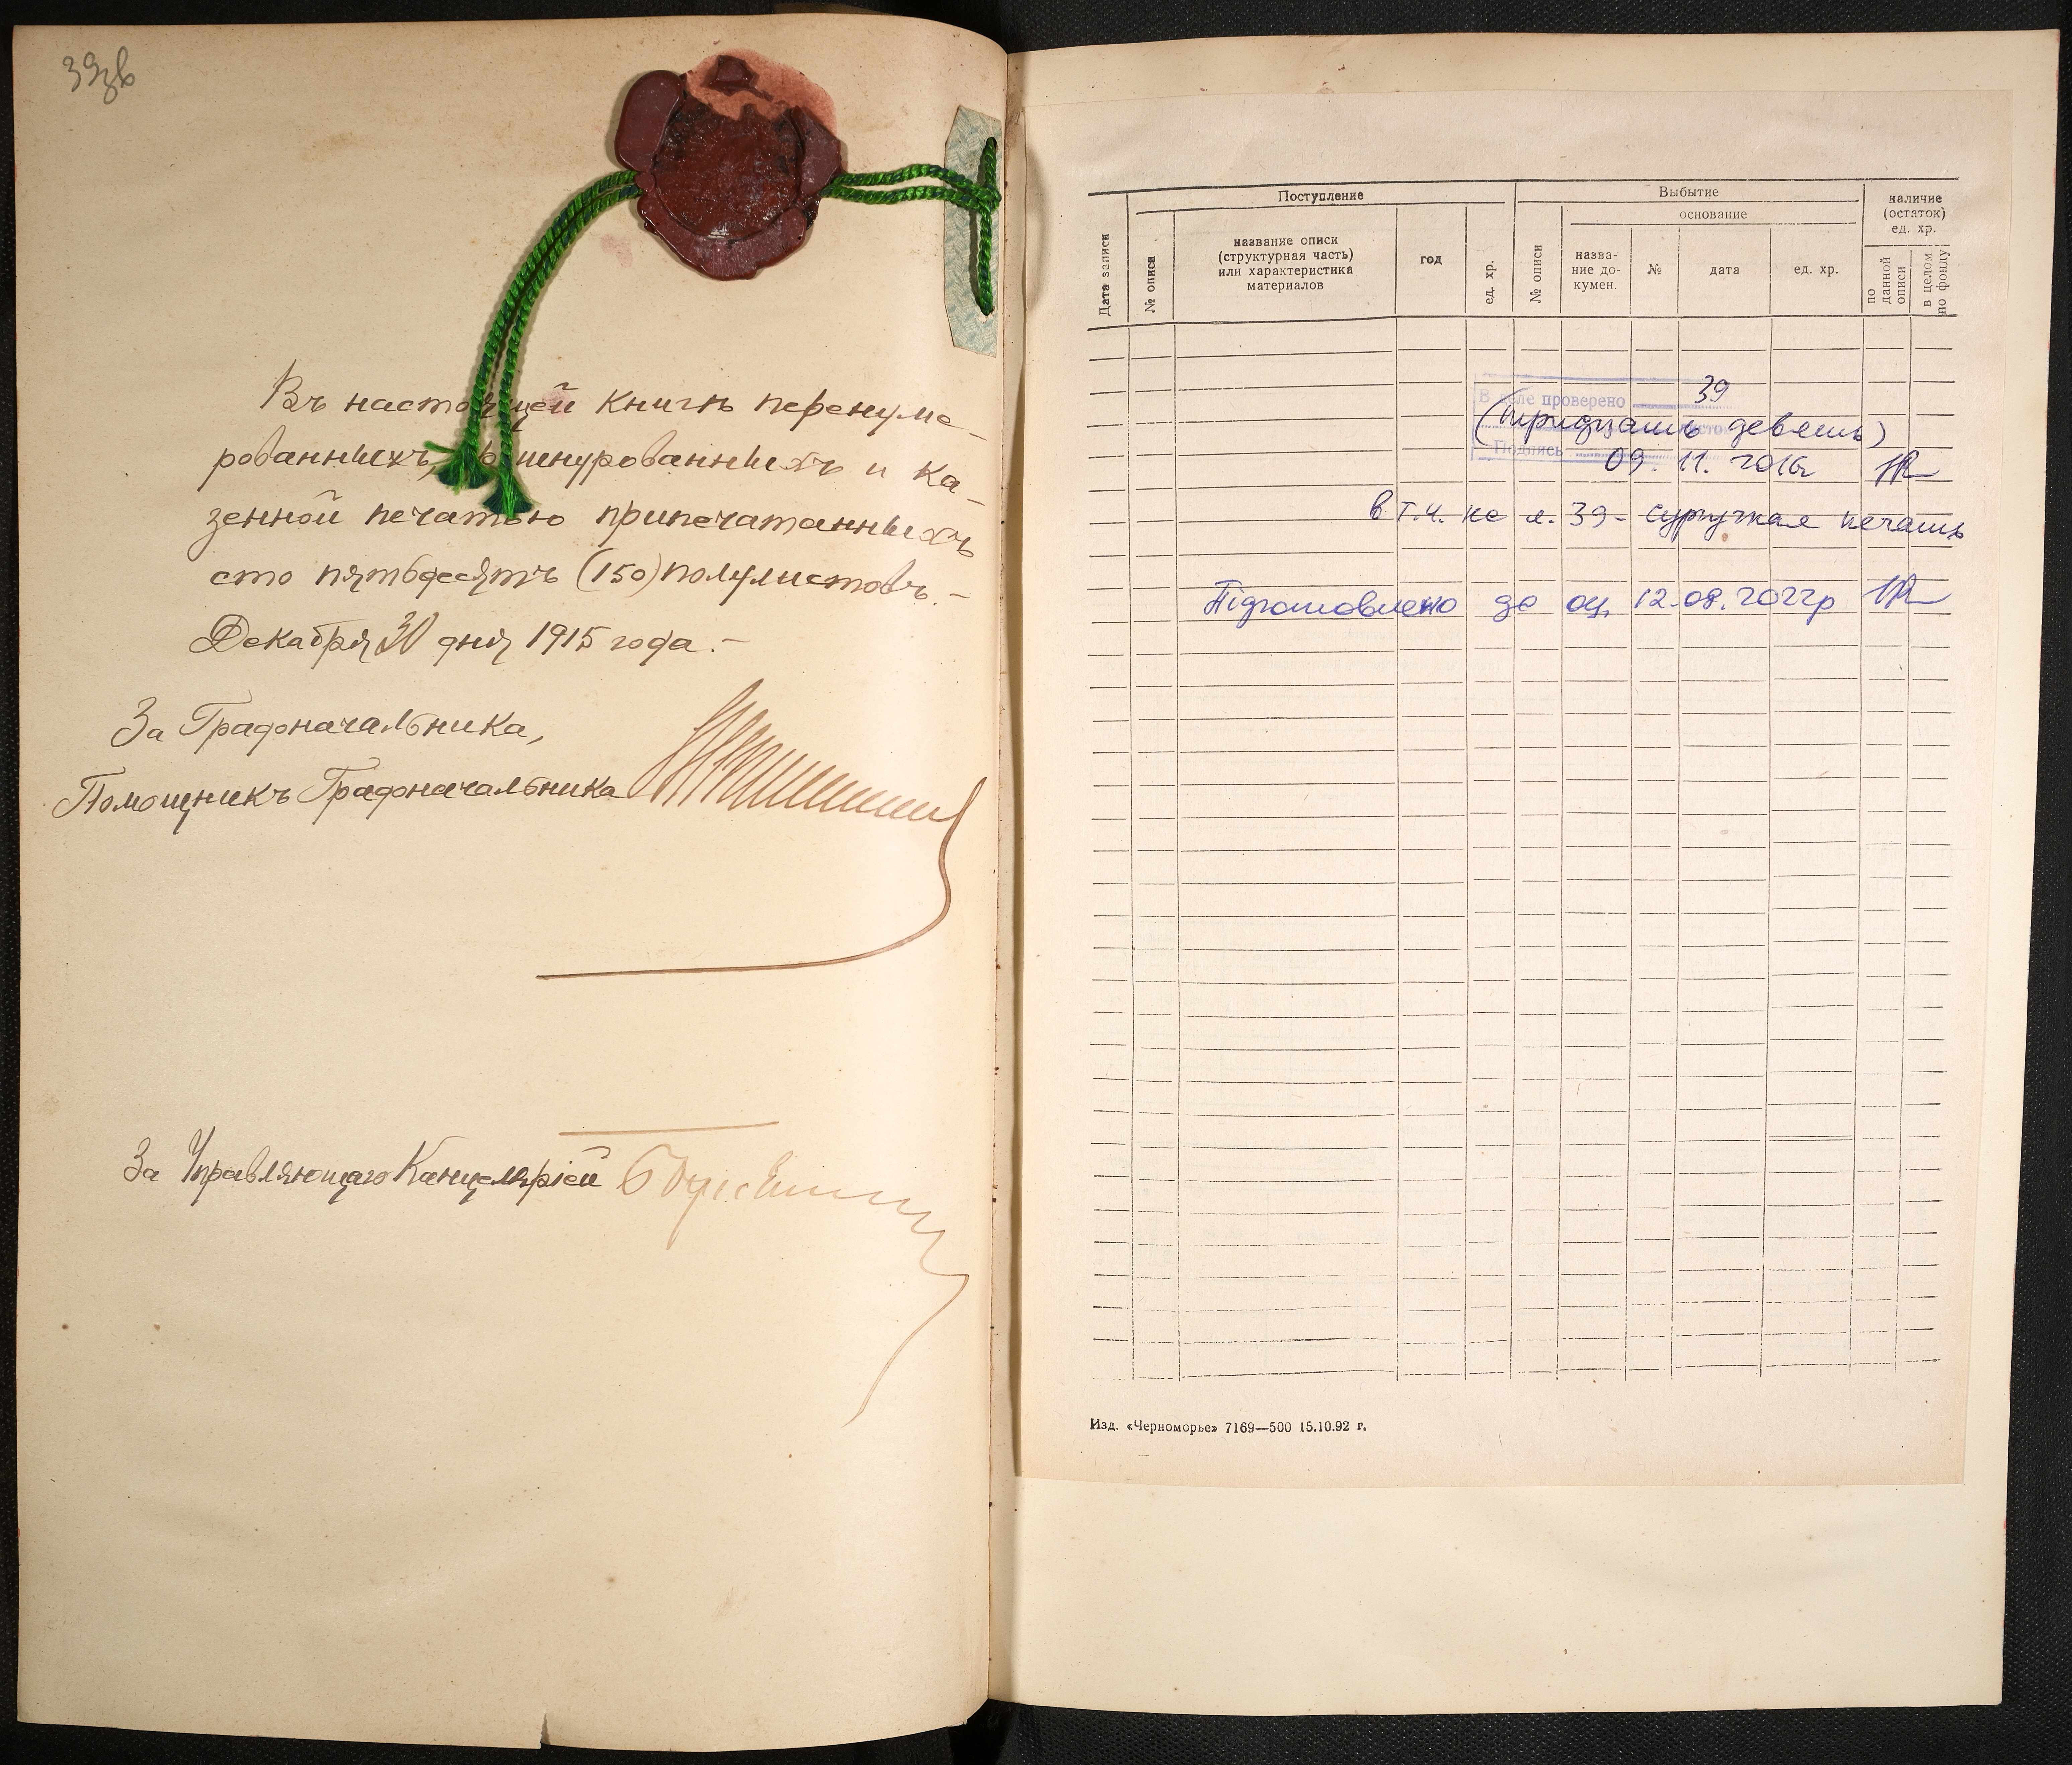 39зв
Въ настоящей книгѣ перенуме-
рованныхъ, прошнурованныхъ и ка-
зенной печатью припечатанныхъ
сто пятьдесятъ (150) полулистовъ.-
Декабря 30 дня 1915 года.-
За Градоначальника,
Помощникъ Градоначальника
За Управляющаго Канцеляріей
Дата записи
Поступление
№ описи
название описи
(структурная часть)
или характеристика
материалов
год
ед. хр.
Выбытие
№ описи
основание
назва-
ние до-
кумен.
№
дата
ед. хр.
наличие
(остаток)
ед. хр.
по данной описи
в целом по фонду
В деле проверено 39
(тридцать девять)
Подпись 09. 11. 2016
в т.ч. на л. 39 - сургучная печать
Підготовлено до оц. 12.08.2022р
Изд. «Черноморье» 7169—500 15.10.92 г.